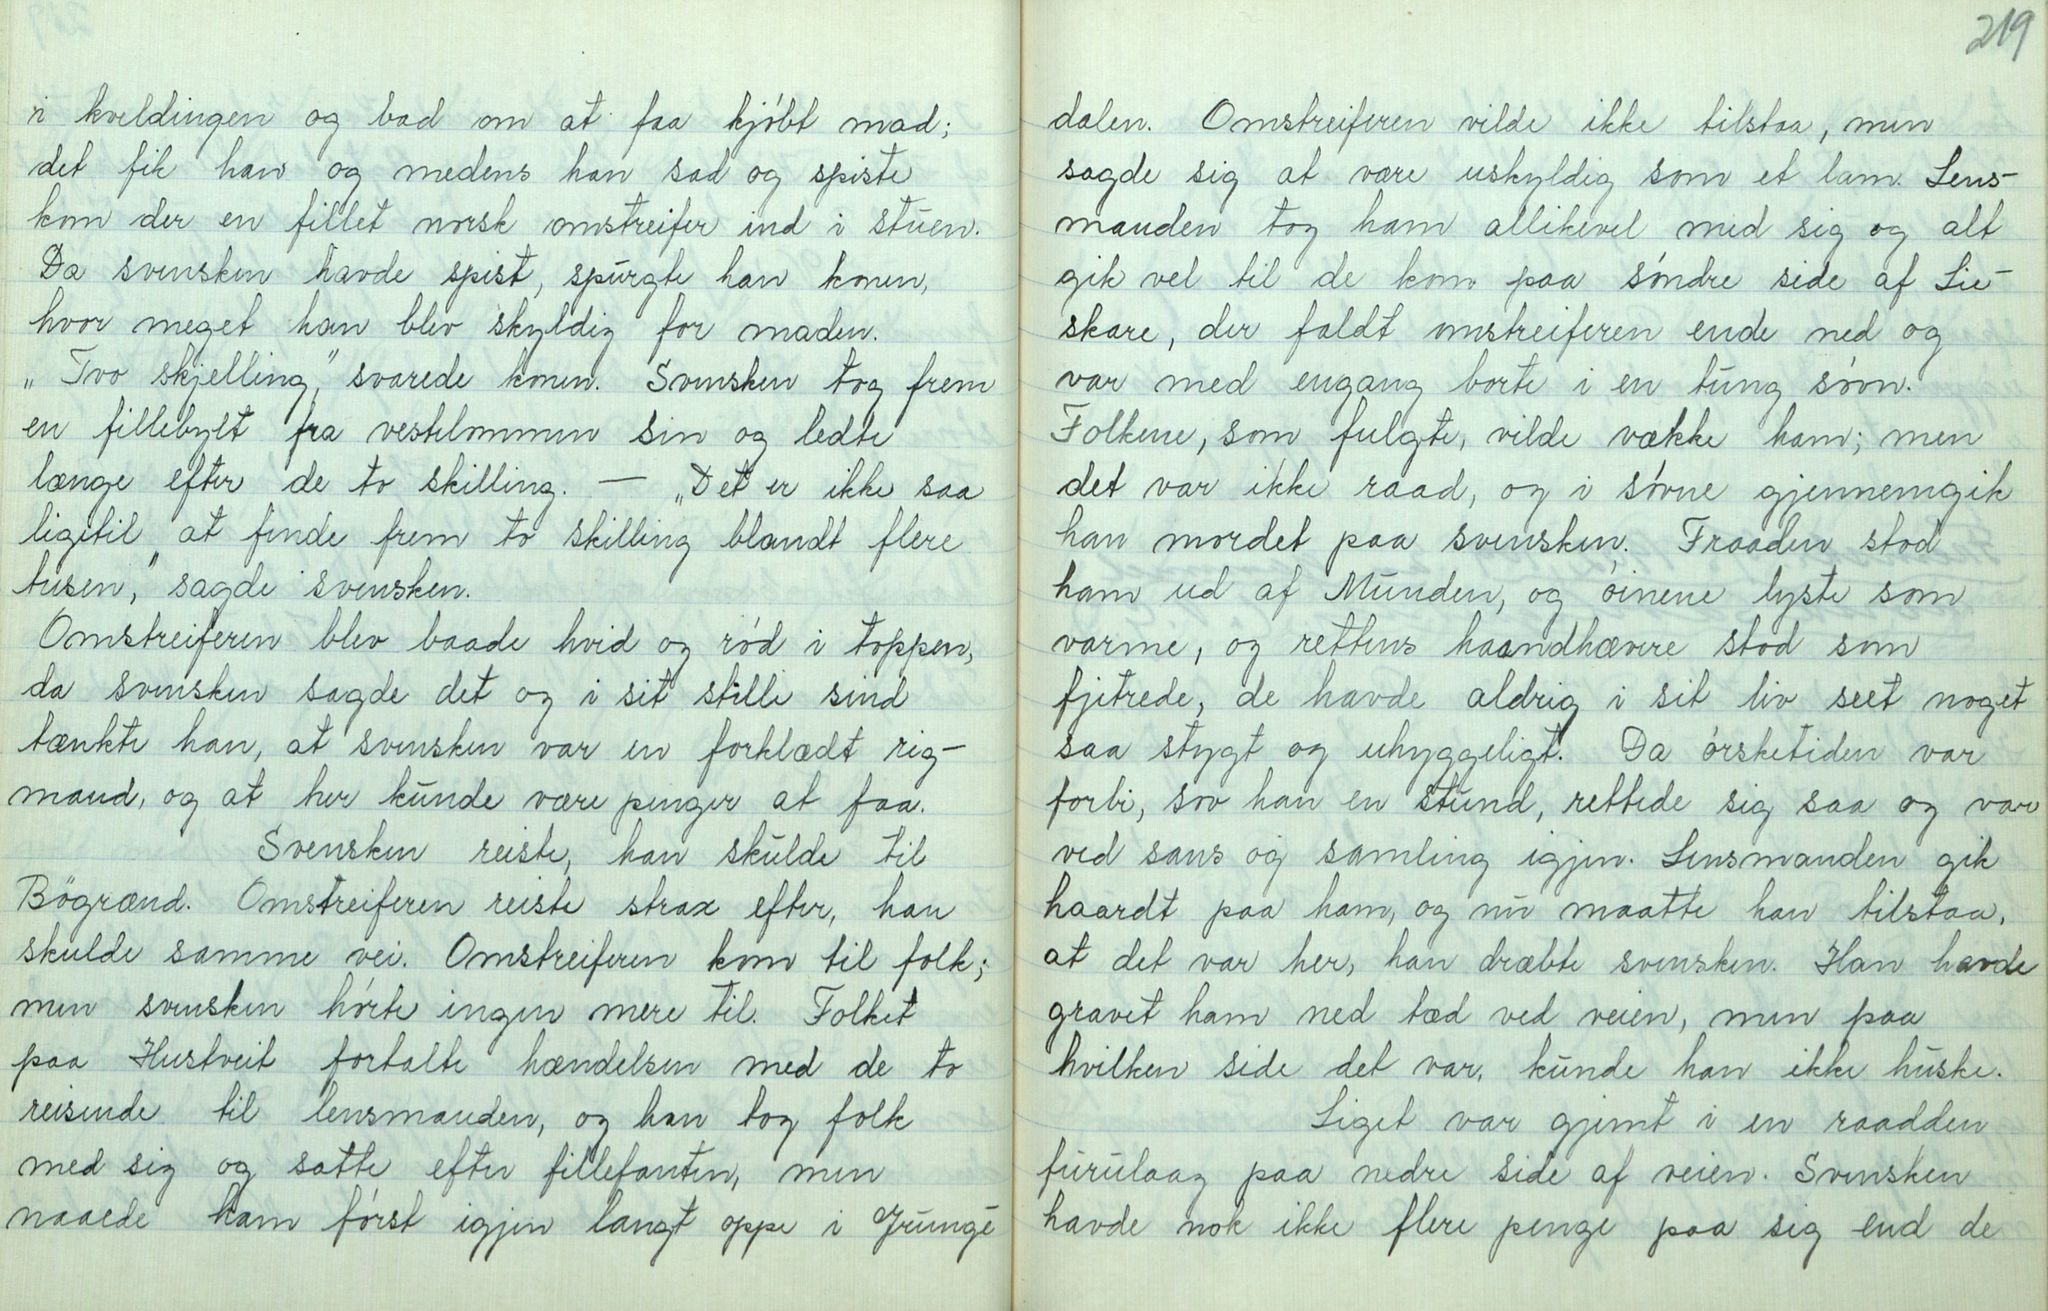 i kveldingen og bad om at faa kjóbt mad;
det fik han og medens han sad og spiste
kom der en fillet norsk omstreifer ind i stuen.
Da svensken havde spist, spurgte han konen,
hvor meget han blev skyldig for maden.
„Tvo skjelling," svarede konen. Svensken tog frem
en fillebylt fra vestelommen sin og ledte
længe efter de to skilling. — „Det er ikke saa
ligetil at finde frem to skilling blandt flere
tusen," sagde svensken.
Omstreiferen blev baade hvid og ród i toppen,
da svensken sagde det og i sit stille sind
tænkte han, at svensken var en forklædt rig-
mand, og at her kunde være penger at faa.
Svensken reiste, han skulde til
Bögrænd. Omstreiferen reiste strax efter, han
skulde samme vei. Omstreiferen kom til folk;
men svensken hórte ingen mere til. Folket
paa Hustveit fortalte hændelsen med de to
reisende til lensmanden, og han tog folk
med sig og satte efter fillefanten, men
naaede ham fórst igjen langt oppe i Grunge
219
dalen. Omstreiferen vilde ikke tilstaa, men
sagde sig at være uskyldig som et lam. Lens-
manden tog ham allikevel med sig og alt
gik vel til de kom paa sóndre side af Lie-
skare, der faldt omstreiferen ende ned og
var med engang borte i en tung sóvn.
Folkene, som fulgte, vilde vække ham; men
det var ikke raad, og i sóvne gjennemgik
han mordet paa svensken. Fraaden stod
ham ud af Munden, og óinene lyste som
varme, og rettens haandhævere stod som
fjetrede, de havde aldrig i sit liv seet noget
saa stygt og uhyggeligt. Da órsketiden var
forbi, sov han en stund, rettede sig saa og var
ved sans og samling igjen. Lensmanden gik
haardt paa ham, og nu maatte han tilstaa,
at det var her, han dræbte svensken. Han havde
gravet ham ned tæd ved veien, men paa
hvilken side det var, kunde han ikke huske.
Liget var gjemt i en raadden
furulaag paa nedre side af veien. Svensken
havde nok ikke flere penge paa sig end de